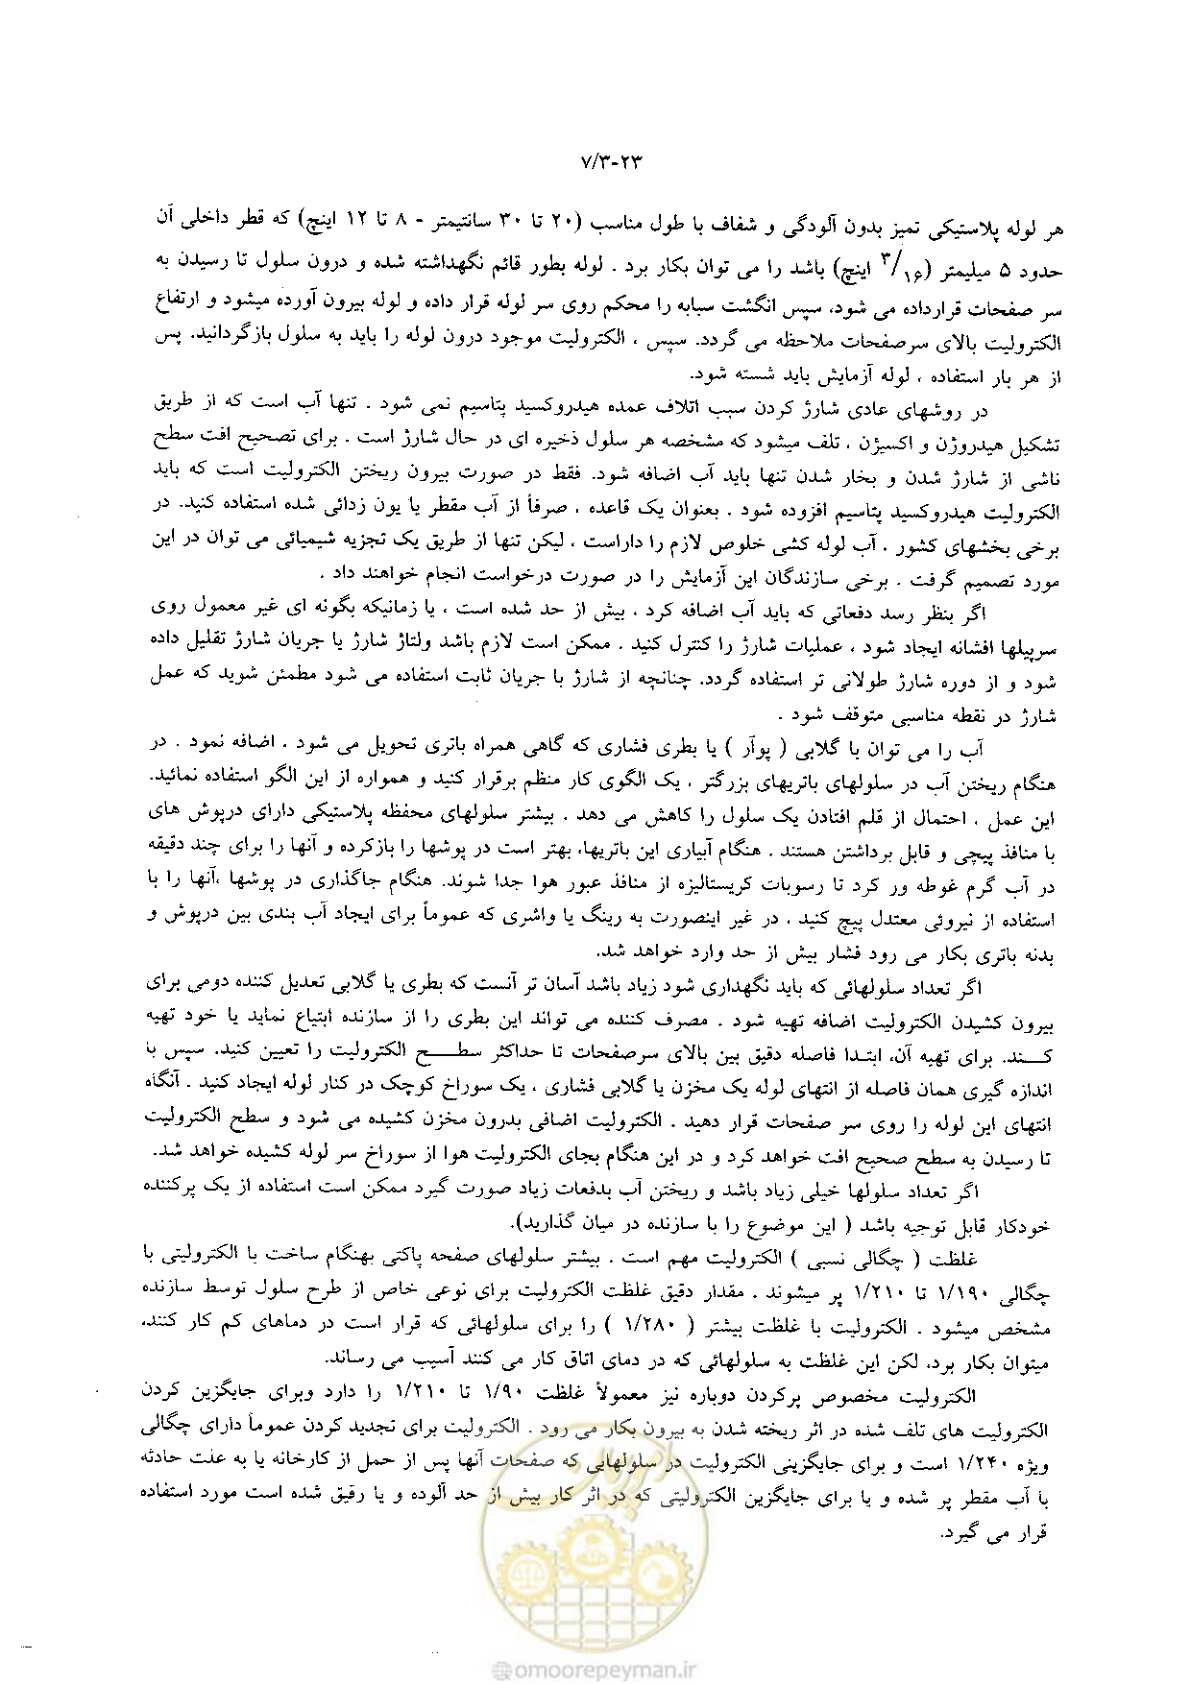 ۷/۳-۲۳
هر لوله پلاستیکی تمیز بدون آلودگی و شفاف با طول مناسب (۲۰ تا ۳۰ سانتیمتر - ۸ تا ۱۲ اینچ) که قطر داخلی آن
حدود ۵ میلیمتر (۳/۱۶ اینچ) باشد را می توان بکار برد . لوله بطور قائم نگهداشته شده و درون سلول تا رسیدن به
سر صفحات قرارداده می شود، سپس انگشت سبابه را محکم روی سر لوله قرار داده و لوله بیرون آورده میشود و ارتفاع
الکترولیت بالای سرصفحات ملاحظه می گردد. سپس ، الکترولیت موجود درون لوله را باید به سلول بازگردانید. پس
از هر بار استفاده ، لوله آزمایش باید شسته شود.
در روشهای عادی شارژ کردن سبب اتلاف عمده هیدروکسید پتاسیم نمی شود . تنها آب است که از طریق
تشکیل هیدروژن و اکسیژن ، تلف میشود که مشخصه هر سلول ذخیره ای در حال شارژ است . برای تصحیح افت سطح
ناشی از شارژ شدن و بخار شدن تنها باید آب اضافه شود. فقط در صورت بیرون ریختن الکترولیت است که باید
الکترولیت هیدروکسید پتاسیم افزوده شود . بعنوان یک قاعده ، صرفاً از آب مقطر یا یون زدائی شده استفاده کنید. در
برخی بخشهای کشور . آب لوله کشی خلوص لازم را داراست ، لیکن تنها از طریق یک تجزیه شیمیائی می توان در این
مورد تصمیم گرفت . برخی سازندگان این آزمایش را در صورت درخواست انجام خواهند داد .
اگر بنظر رسد دفعاتی که باید آب اضافه کرد ، بیش از حد شده است ، یا زمانیکه بگونه ای غیر معمول روی
سرپیلها افشانه ایجاد شود ، عملیات شارژ را کنترل کنید . ممکن است لازم باشد ولتاژ شارژ یا جریان شارژ تقلیل داده
شود و از دوره شارژ طولانی تر استفاده گردد. چنانچه از شارژ با جریان ثابت استفاده می شود مطمئن شوید که عمل
شارژ در نقطه مناسبی متوقف شود .
آب را می توان با گلابی ( پوآر ) یا بطری فشاری که گاهی همراه باتری تحویل می شود ، اضافه نمود . در
هنگام ریختن آب در سلولهای باتریهای بزرگتر ، یک الگوی کار منظم برقرار کنید و همواره از این الگو استفاده نمائید.
این عمل ، احتمال از قلم افتادن یک سلول را کاهش می دهد . بیشتر سلولهای محفظه پلاستیکی دارای درپوش های
با منافذ پیچی و قابل برداشتن هستند . هنگام آبیاری این باتریها، بهتر است در پوشها را بازکرده و آنها را برای چند دقیقه
در آب گرم غوطه ور کرد تا رسوبات کریستالیزه از منافذ عبور هوا جدا شوند. هنگام جاگذاری در پوشها ،آنها را با
استفاده از نیروئی معتدل پیچ کنید ، در غیر اینصورت به رینگ یا واشری که عموماً برای ایجاد آب بندی بین درپوش و
بدنه باتری بکار می رود فشار بیش از حد وارد خواهد شد.
اگر تعداد سلولهائی که باید نگهداری شود زیاد باشد آسان تر آنست که بطری یا گلابی تعدیل کننده دومی برای
بیرون کشیدن الکترولیت اضافه تهیه شود . مصرف کننده می تواند این بطری را از سازنده ابتیاع نماید یا خود تهیه
کـــند. برای تهیه آن، ابتدا فاصله دقیق بین بالای سرصفحات تا حداکثر سطـــح الکترولیت را تعیین کنید. سپس با
اندازه گیری همان فاصله از انتهای لوله یک مخزن یا گلابی فشاری ، یک سوراخ کوچک در کنار لوله ایجاد کنید . آنگاه
انتهای این لوله را روی سر صفحات قرار دهید . الکترولیت اضافی بدرون مخزن کشیده می شود و سطح الکترولیت
تا رسیدن به سطح صحیح افت خواهد کرد و در این هنگام بجای الکترولیت هوا از سوراخ سر لوله کشیده خواهد شد.
اگر تعداد سلولها خیلی زیاد باشد و ریختن آب بدفعات زیاد صورت گیرد ممکن است استفاده از یک پرکننده
خودکار قابل توجیه باشد ( این موضوع را با سازنده در میان گذارید).
غلظت ( چگالی نسبی ) الکترولیت مهم است . بیشتر سلولهای صفحه پاکتی بهنگام ساخت با الکترولیتی با
چگالی ۱/۱۹۰ تا ۱/۲۱۰ پر میشوند . مقدار دقیق غلظت الکترولیت برای نوعی خاص از طرح سلول توسط سازنده
مشخص میشود . الکترولیت با غلظت بیشتر ( ۱/۲۸۰ ) را برای سلولهائی که قرار است در دماهای کم کار کنند،
میتوان بکار برد، لکن این غلظت به سلولهائی که در دمای اتاق کار می کنند آسیب می رساند.
الکترولیت مخصوص پرکردن دوباره نیز معمولاً غلظت ۱/۹۰ تا ۱/۲۱۰ را دارد وبرای جایگزین کردن
الکترولیت های تلف شده در اثر ریخته شدن به بیرون بکار می رود . الکترولیت برای تجدید کردن عموماً دارای چگالی
ویژه ۱/۲۴۰ است و برای جایگزینی الکترولیت در سلولهایی که صفحات آنها پس از حمل از کارخانه یا به علت حادثه
با آب مقطر پر شده و یا برای جایگزین الکترولیتی که در اثر کار بیش از حد آلوده و یا رقیق شده است مورد استفاده
قرار می گیرد.
@omoorepeyman.ir